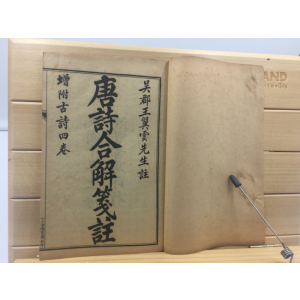 吳郡王翼雲先生註
唐詩合解箋註
增附古詩四卷
AND